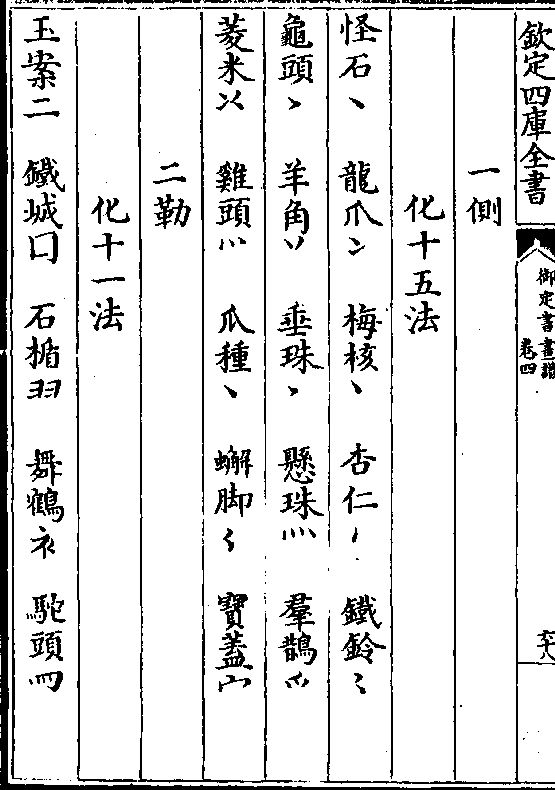 欽定四庫全書 御定書畫譜 卷四
一側
化十五法
怪石丶 龍爪冫 梅核丶 杏仁 鐵鈴
龜頭 羊角丷 垂珠 懸珠灬 羣鵲爫
菱米 雞頭 爪種丶 蠏脚 寶蓋宀
二勒
化十一法
玉案二 鐵城囗 石楯 舞鶴 駝頭罒